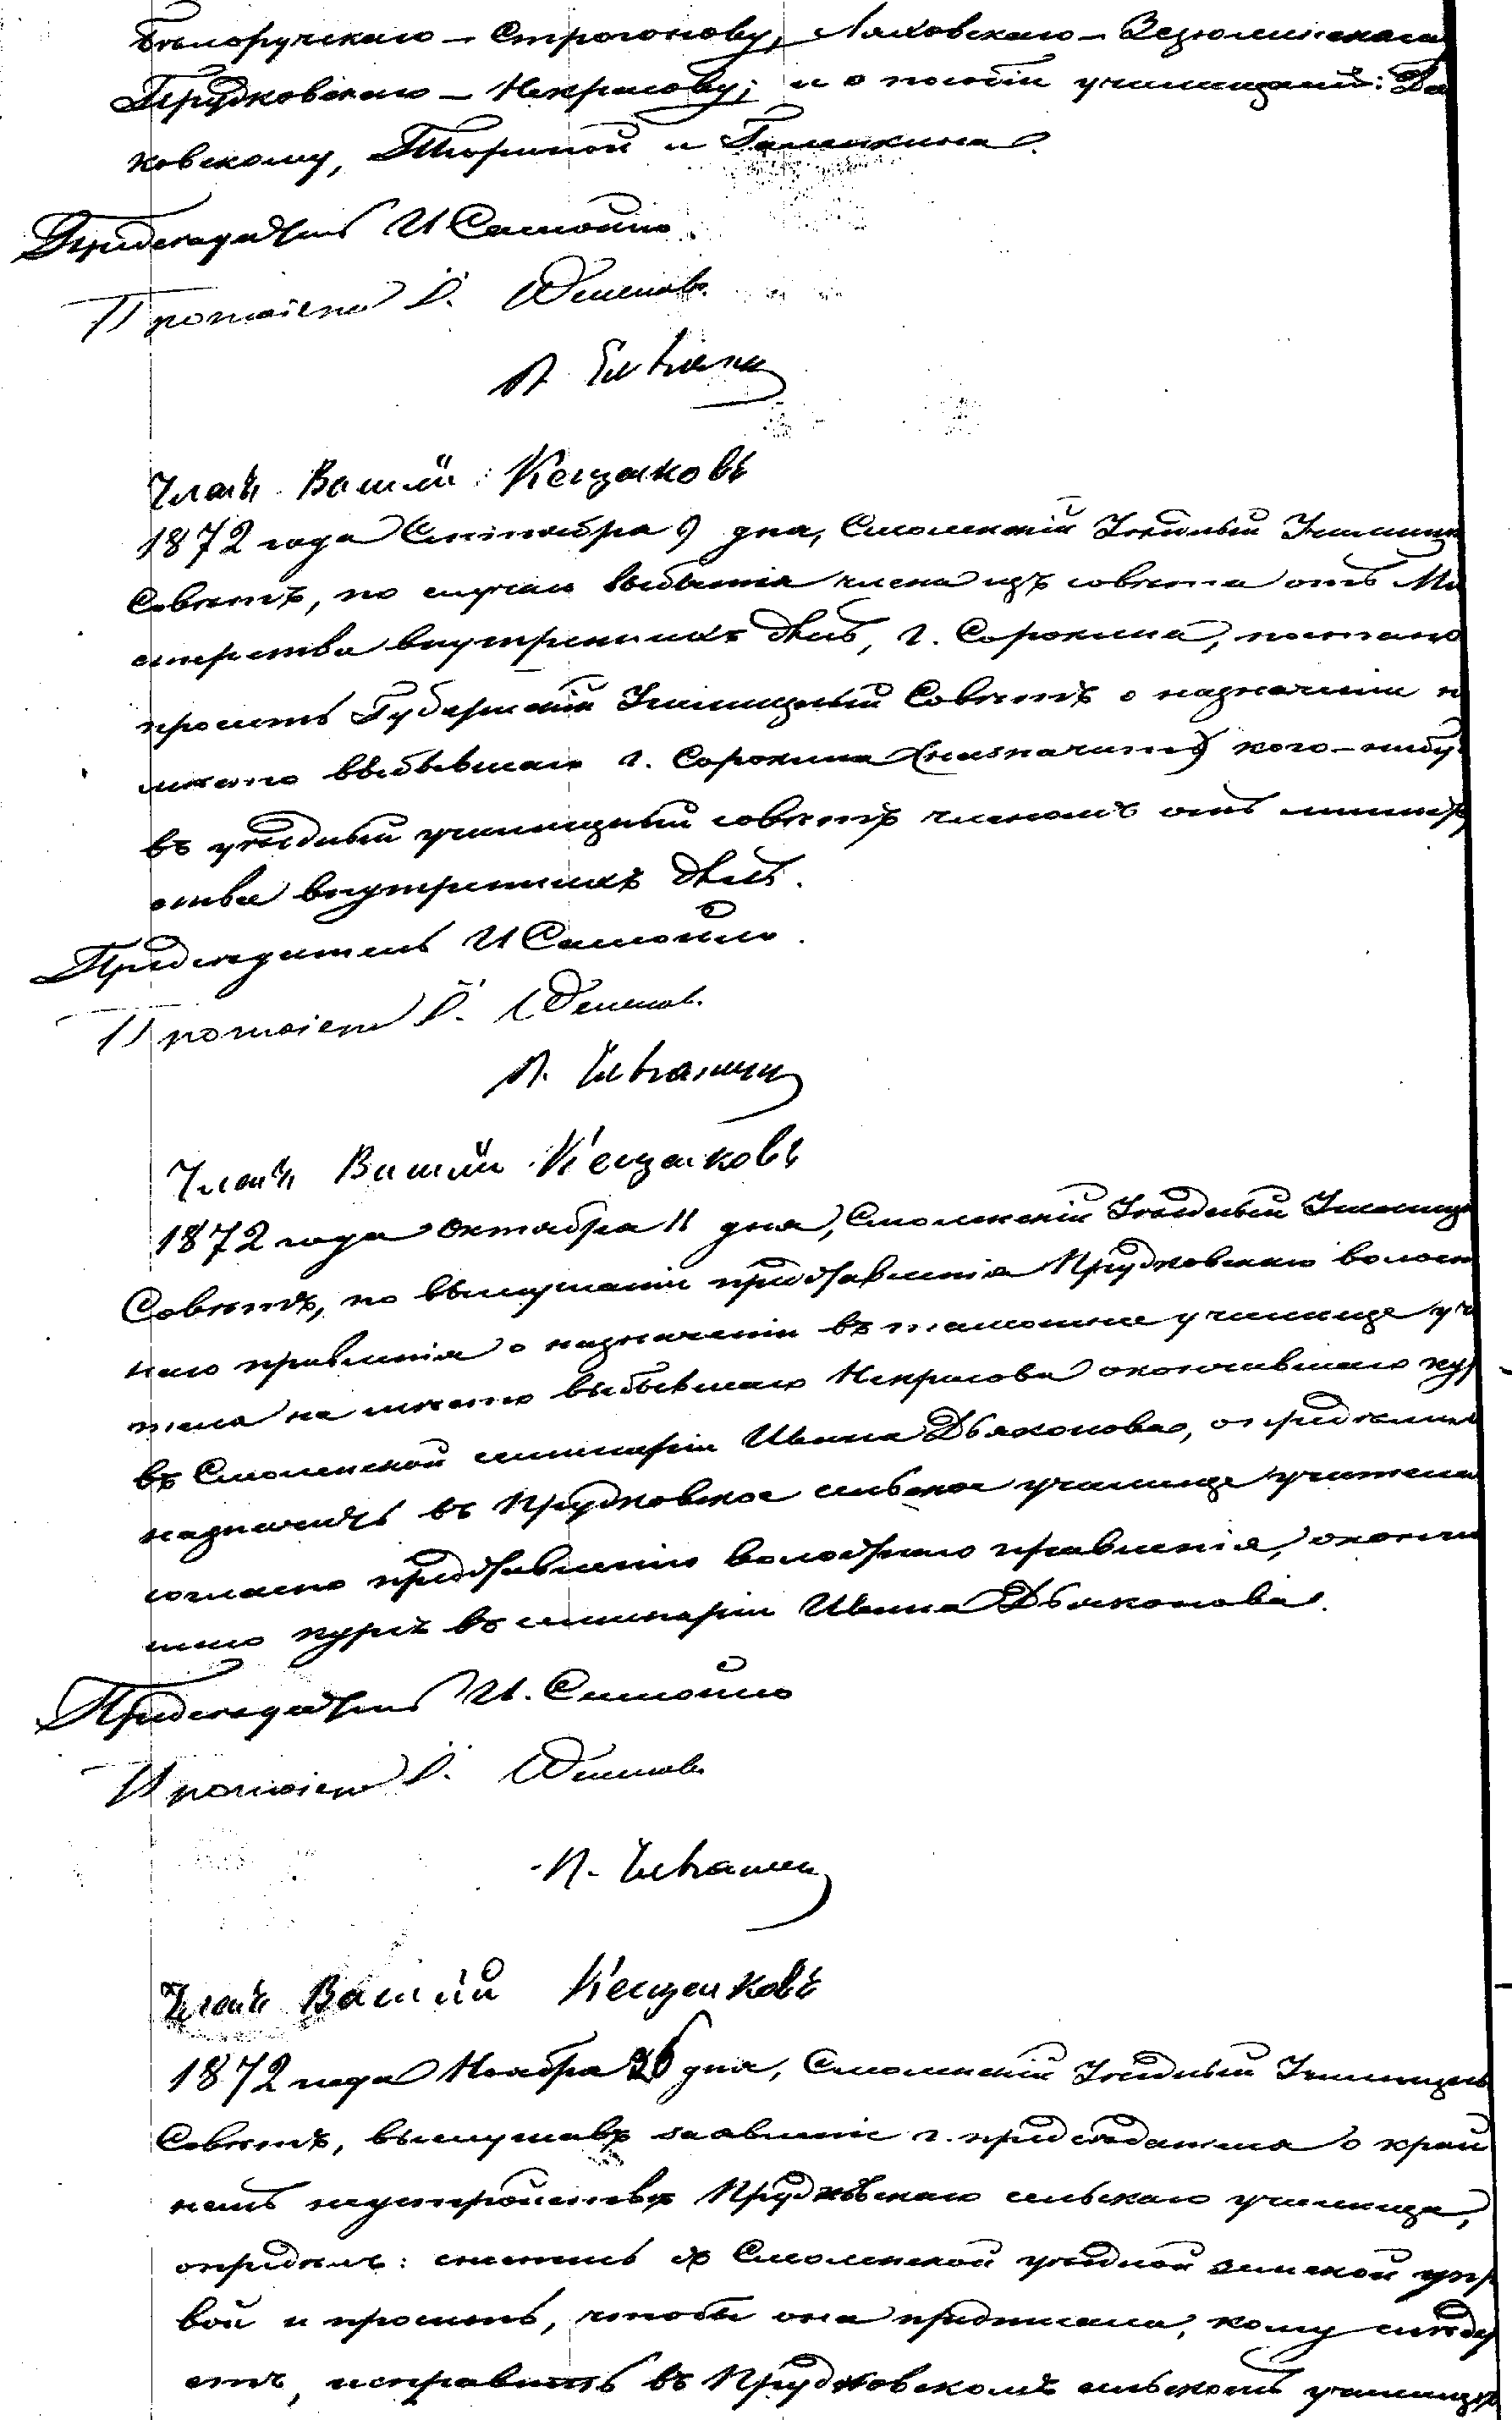 Бѣлоручскаго – Строгонову, Ляховскаго –
Прудковскаго – Некрасову; и о пособіи училищамъ:
ковскому,
Предсѣдатель И Самойло.
Протоіерей П.
Членъ Василій Кещенковъ
1872 года Сентября 9 дня, Смоленскій Уѣздный Училищн
Совѣтъ, по случаю выбытія члена изъ совѣта отъ Ми
стерства внутреннихъ дѣлъ, г. Сорокина, постано
просить Губернскій Училищный Совѣтъ о назначеніи н
мѣсто выбывшаго г. Сорокина (назначить) кого-нибу
въ уѣздный училищный совѣтъ членомъ отъ министр
ства внутреннихъ дѣлъ.
Предсѣдатель И Самойло.
Протоіерей П.
Членъ Василій Кещенковъ
1872 года Октября 11 дня, Смоленскій Уѣздный Училищн
Совѣтъ, по выслушаніи представленія Прудковскаго волост
наго правленія о назначеніи въ тамошнее училище учи
теля на мѣсто выбывшаго Некрасова окончившаго кур
въ Смоленской семинаріи Ивана Дьяконова, опредѣлил
назначить въ Прудковское сельское училище учителем
согласно представленію волостнаго правленія, окончи
шаго курсъ въ семинаріи Ивана Дьяконова.
Предсѣдатель И. Самойло
Протоіерей П.
Членъ Василій Кещенковъ
1872 года Ноября 26 дня, Смоленскій Уѣздный Училищны
Совѣтъ, выслушавъ заявленіе г. предсѣдателя о край
немъ неустройствѣ Прудковскаго сельскаго училища,
опредѣлилъ: снестись съ Смоленской уѣздной земской упр
вой и просить, чтобы она предписала, кому слѣду
етъ, исправить въ Прудковскомъ сельскомъ училищѣ